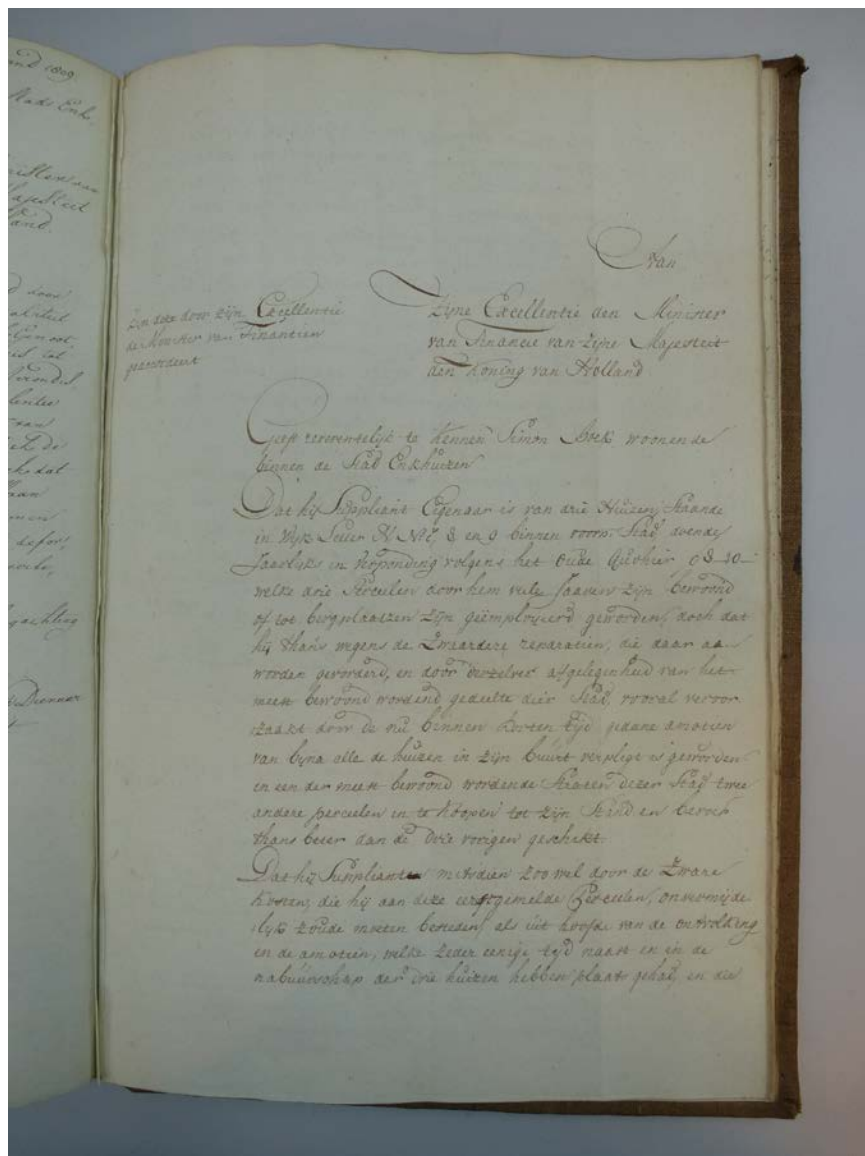 and 1809
Stads Enk.
Majesteit
Land.
door
tot
van
de
dat
Dienaar
Aan
zijn deze door zijn Excellentie
de Minister van Finantien
geaccordeert
Zijne Excellentie den Minister
van Financie van zijne Majesteit
den Koning van Holland
Geeft reverentelijk te kennen Simon Boek woonende
binnen de Stad Enkhuizen
Dat hij Suppliant Eigenaar is van drie Huizen, staande
in Wijk Letter N No 7, 8 en 9 binnen voorn. Stad, doende
Jaarlijks in Verponding volgens het Oude Quohier 8-10-
welke drie Perceelen door hem vele Jaaren zijn bewoond
of tot bergplaatzen zijn geëmploijeerd geworden, doch dat
hij thans wegens de Zwaardere reparatien, die daar aan
worden gevorderd, en door derzelver afgelegenheid van het
meest bewoond wordend gedeelte dier Stad, vooral veroor
zaakt door de nu binnen korten tijd gedane amotien
van bijna alle de huizen in zijn buurt verpligt is geworden
in een der meest bewoond wordende Straaten dezer Stad twee
andere perceelen in te koopen tot zijn Stand en beroep
thans beter dan de drie vorigen geschikt.
Dat hij Suppliant mitsdien zoo wel door de Zware
kosten, die hij aan deze eerstgemelde Perceelen, onvermijde
lijk zoude moeten besteden, als uit hoofde van de ontvolking
en de amotien, welke zeder eenige tijd naast en in de
nabuurschap der drie huizen hebben plaats gehad, en die